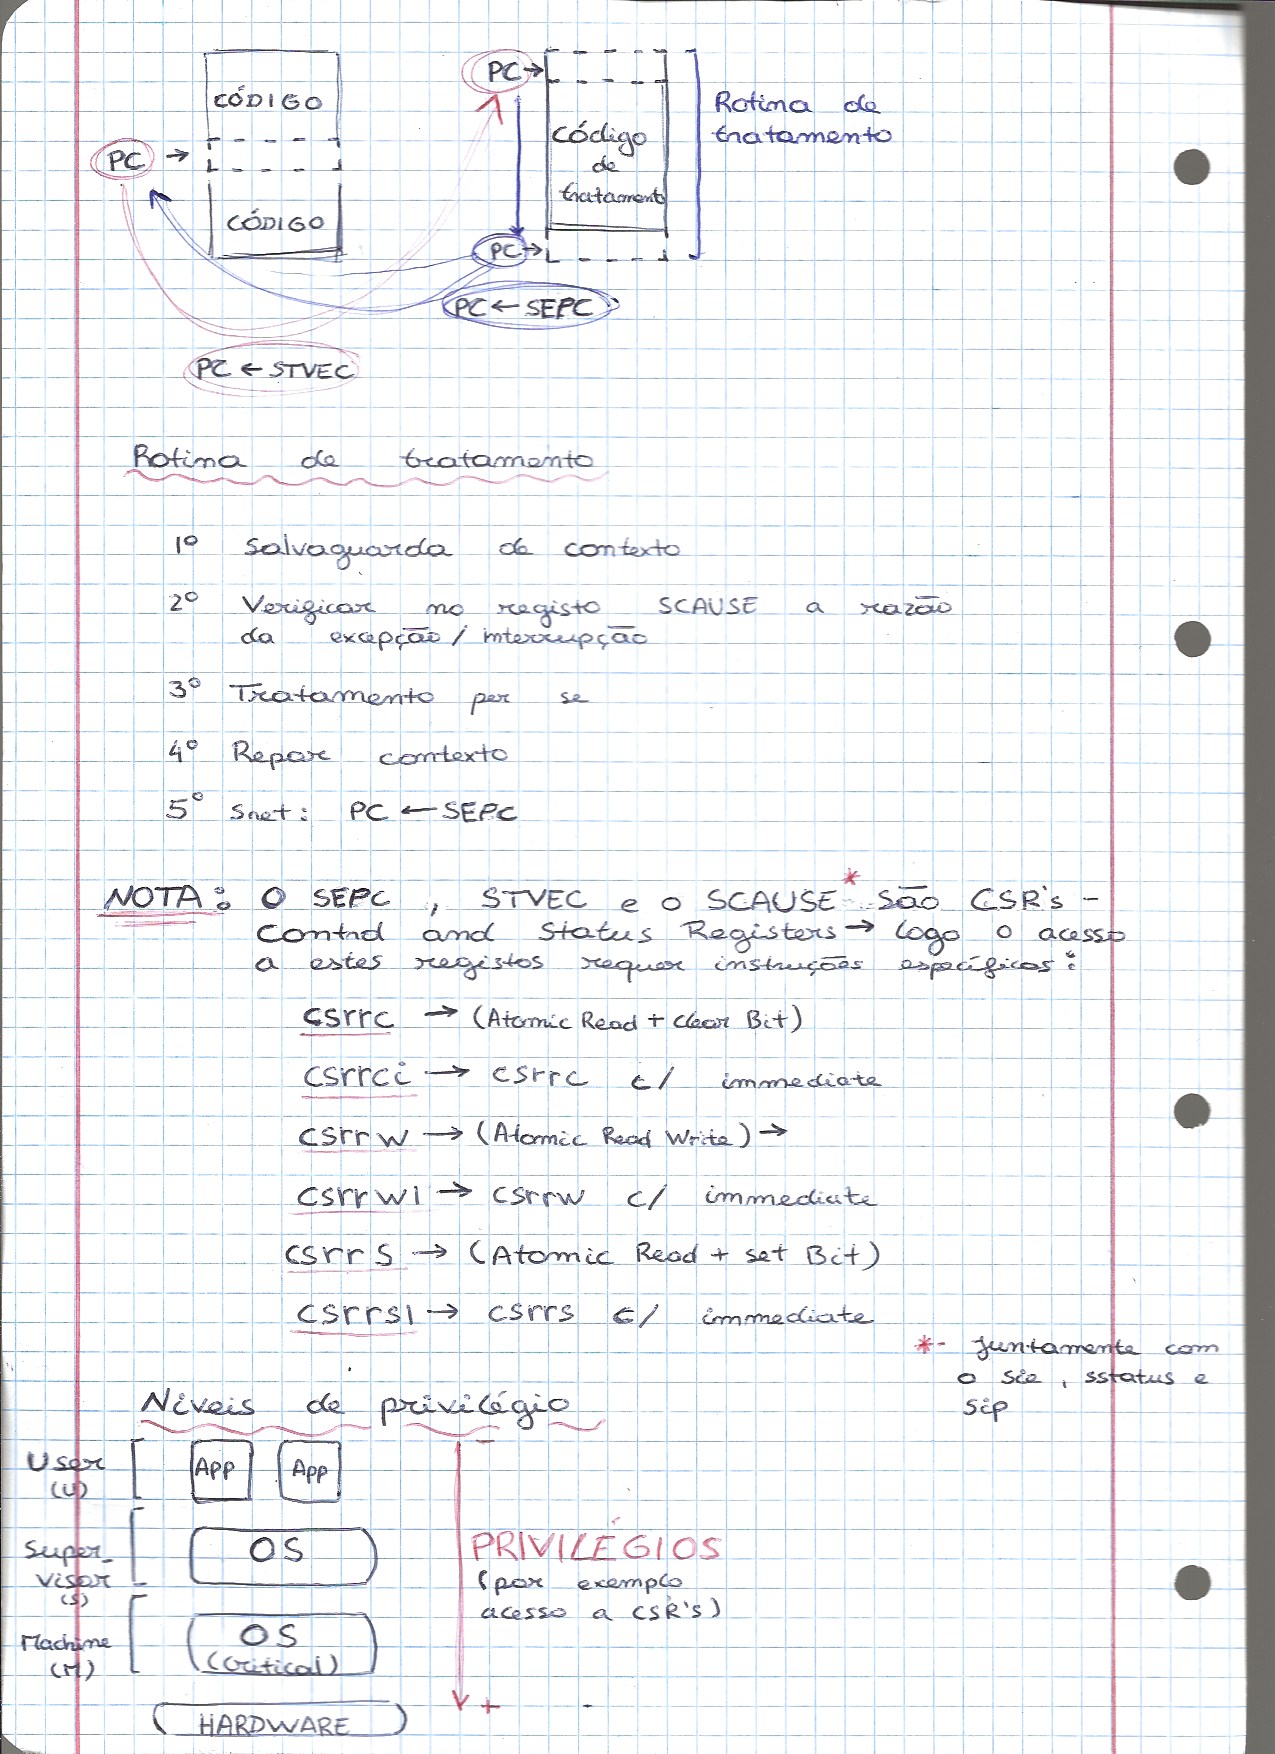 CÓDIGO
PC →
CÓDIGO
PC →
Código
de
tratamento
PC →
Rotina de
tratamento
PC ← SEPC
PC ← STVEC
Rotina de tratamento
1º Salvaguarda de contexto
2º Verificar no registo SCAUSE a razão
da excepção / interrupção
3º Tratamento per se
4º Repor contexto
5º Sret: PC ← SEPC
NOTA: O SEPC, STVEC e o SCAUSE* são CSR's -
Control and Status Registers → logo o acesso
a estes registos requer instruções específicos:
csrrc → (Atomic Read + clear Bit)
csrrci → csrrc c/ immediate
csrrw → (Atomic Read Write) →
csrrwi → csrrw c/ immediate
csrrs → (Atomic Read + set Bit)
csrrsi → csrrs c/ immediate
*- juntamente com
o sie, sstatus e
sip
Níveis de privilégio
User
(U)
App App
Super_
visor
(S)
OS
Machine
(M)
OS
(Critical)
HARDWARE
-
PRIVILÉGIOS
(por exemplo
acesso a CSR's)
+